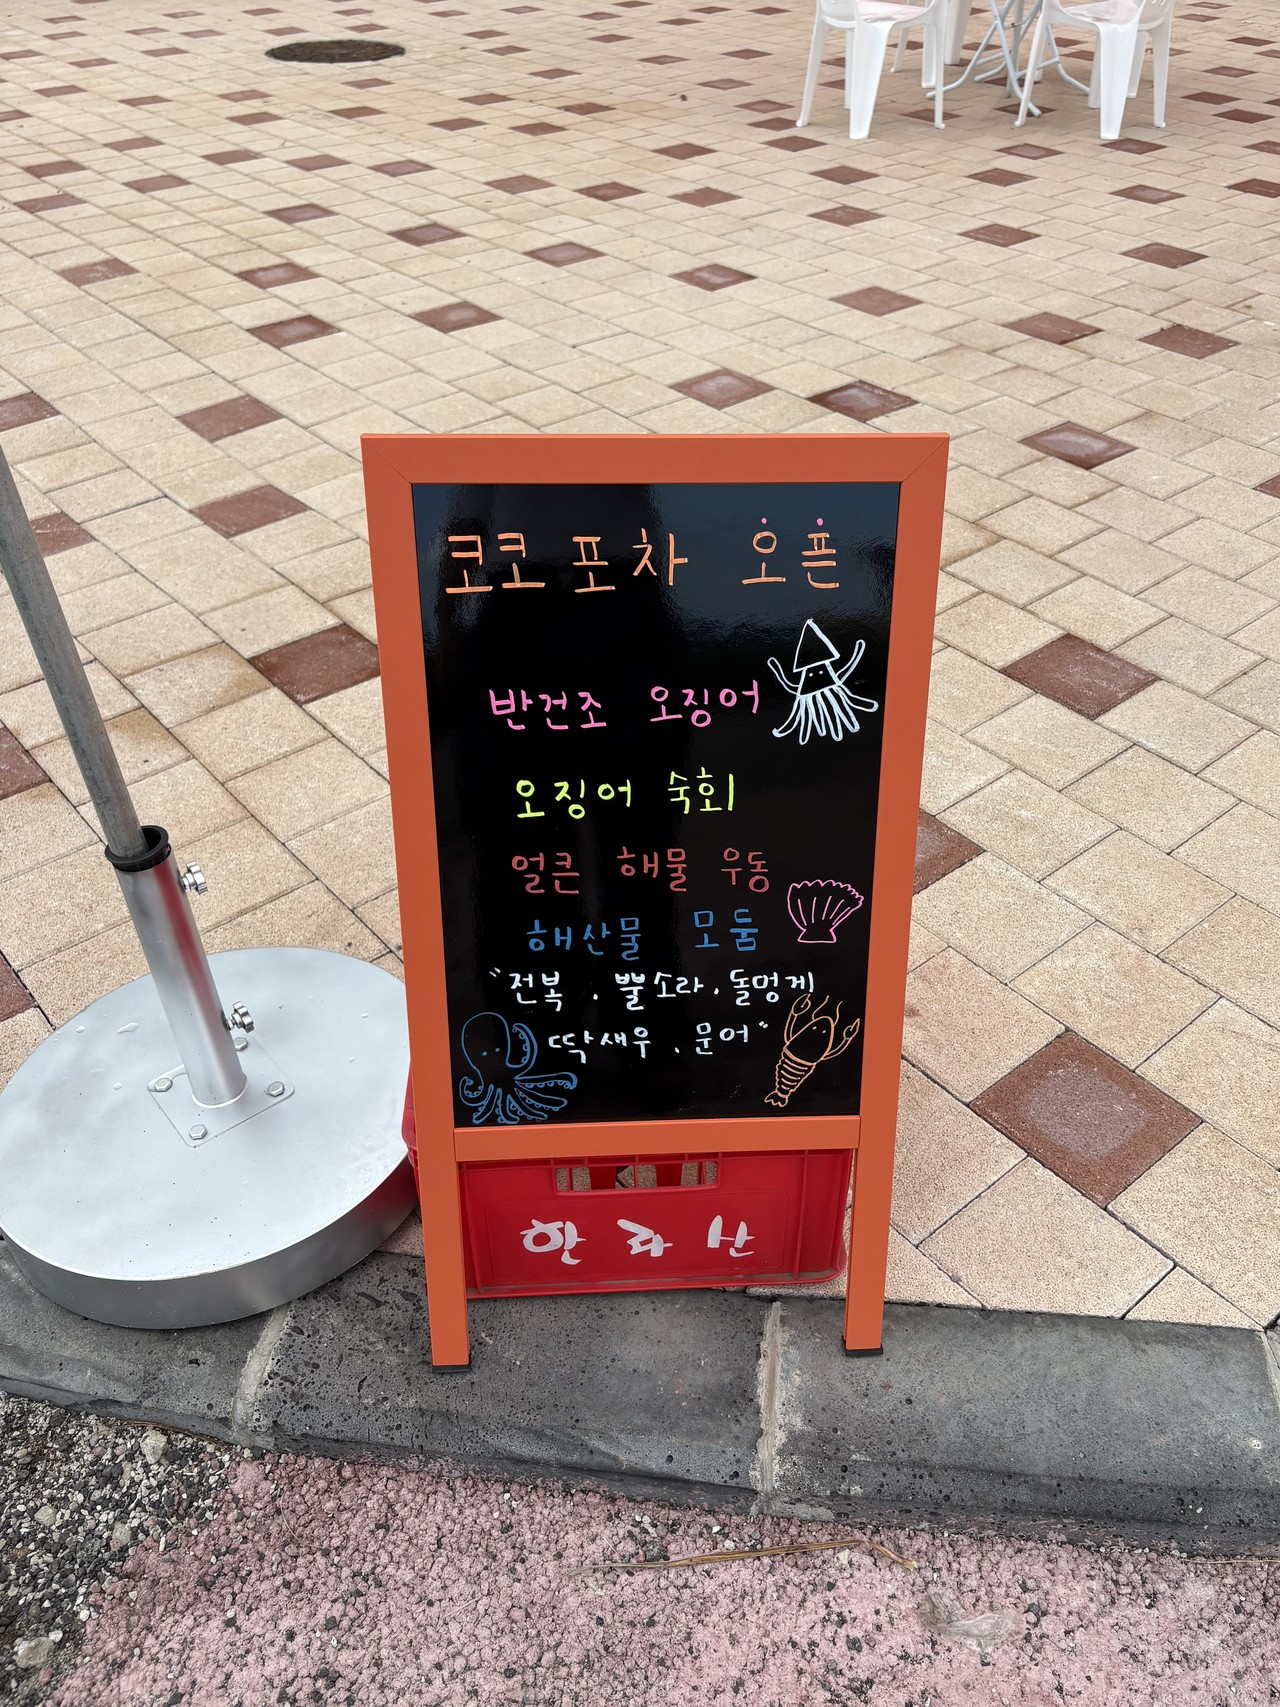 코코포차 오픈
반건조 오징어
오징어 숙회
얼큰 해물 우동
해산물 모둠
"전복 . 뿔소라 . 돌멍게
딱새우 . 문어"
한라산